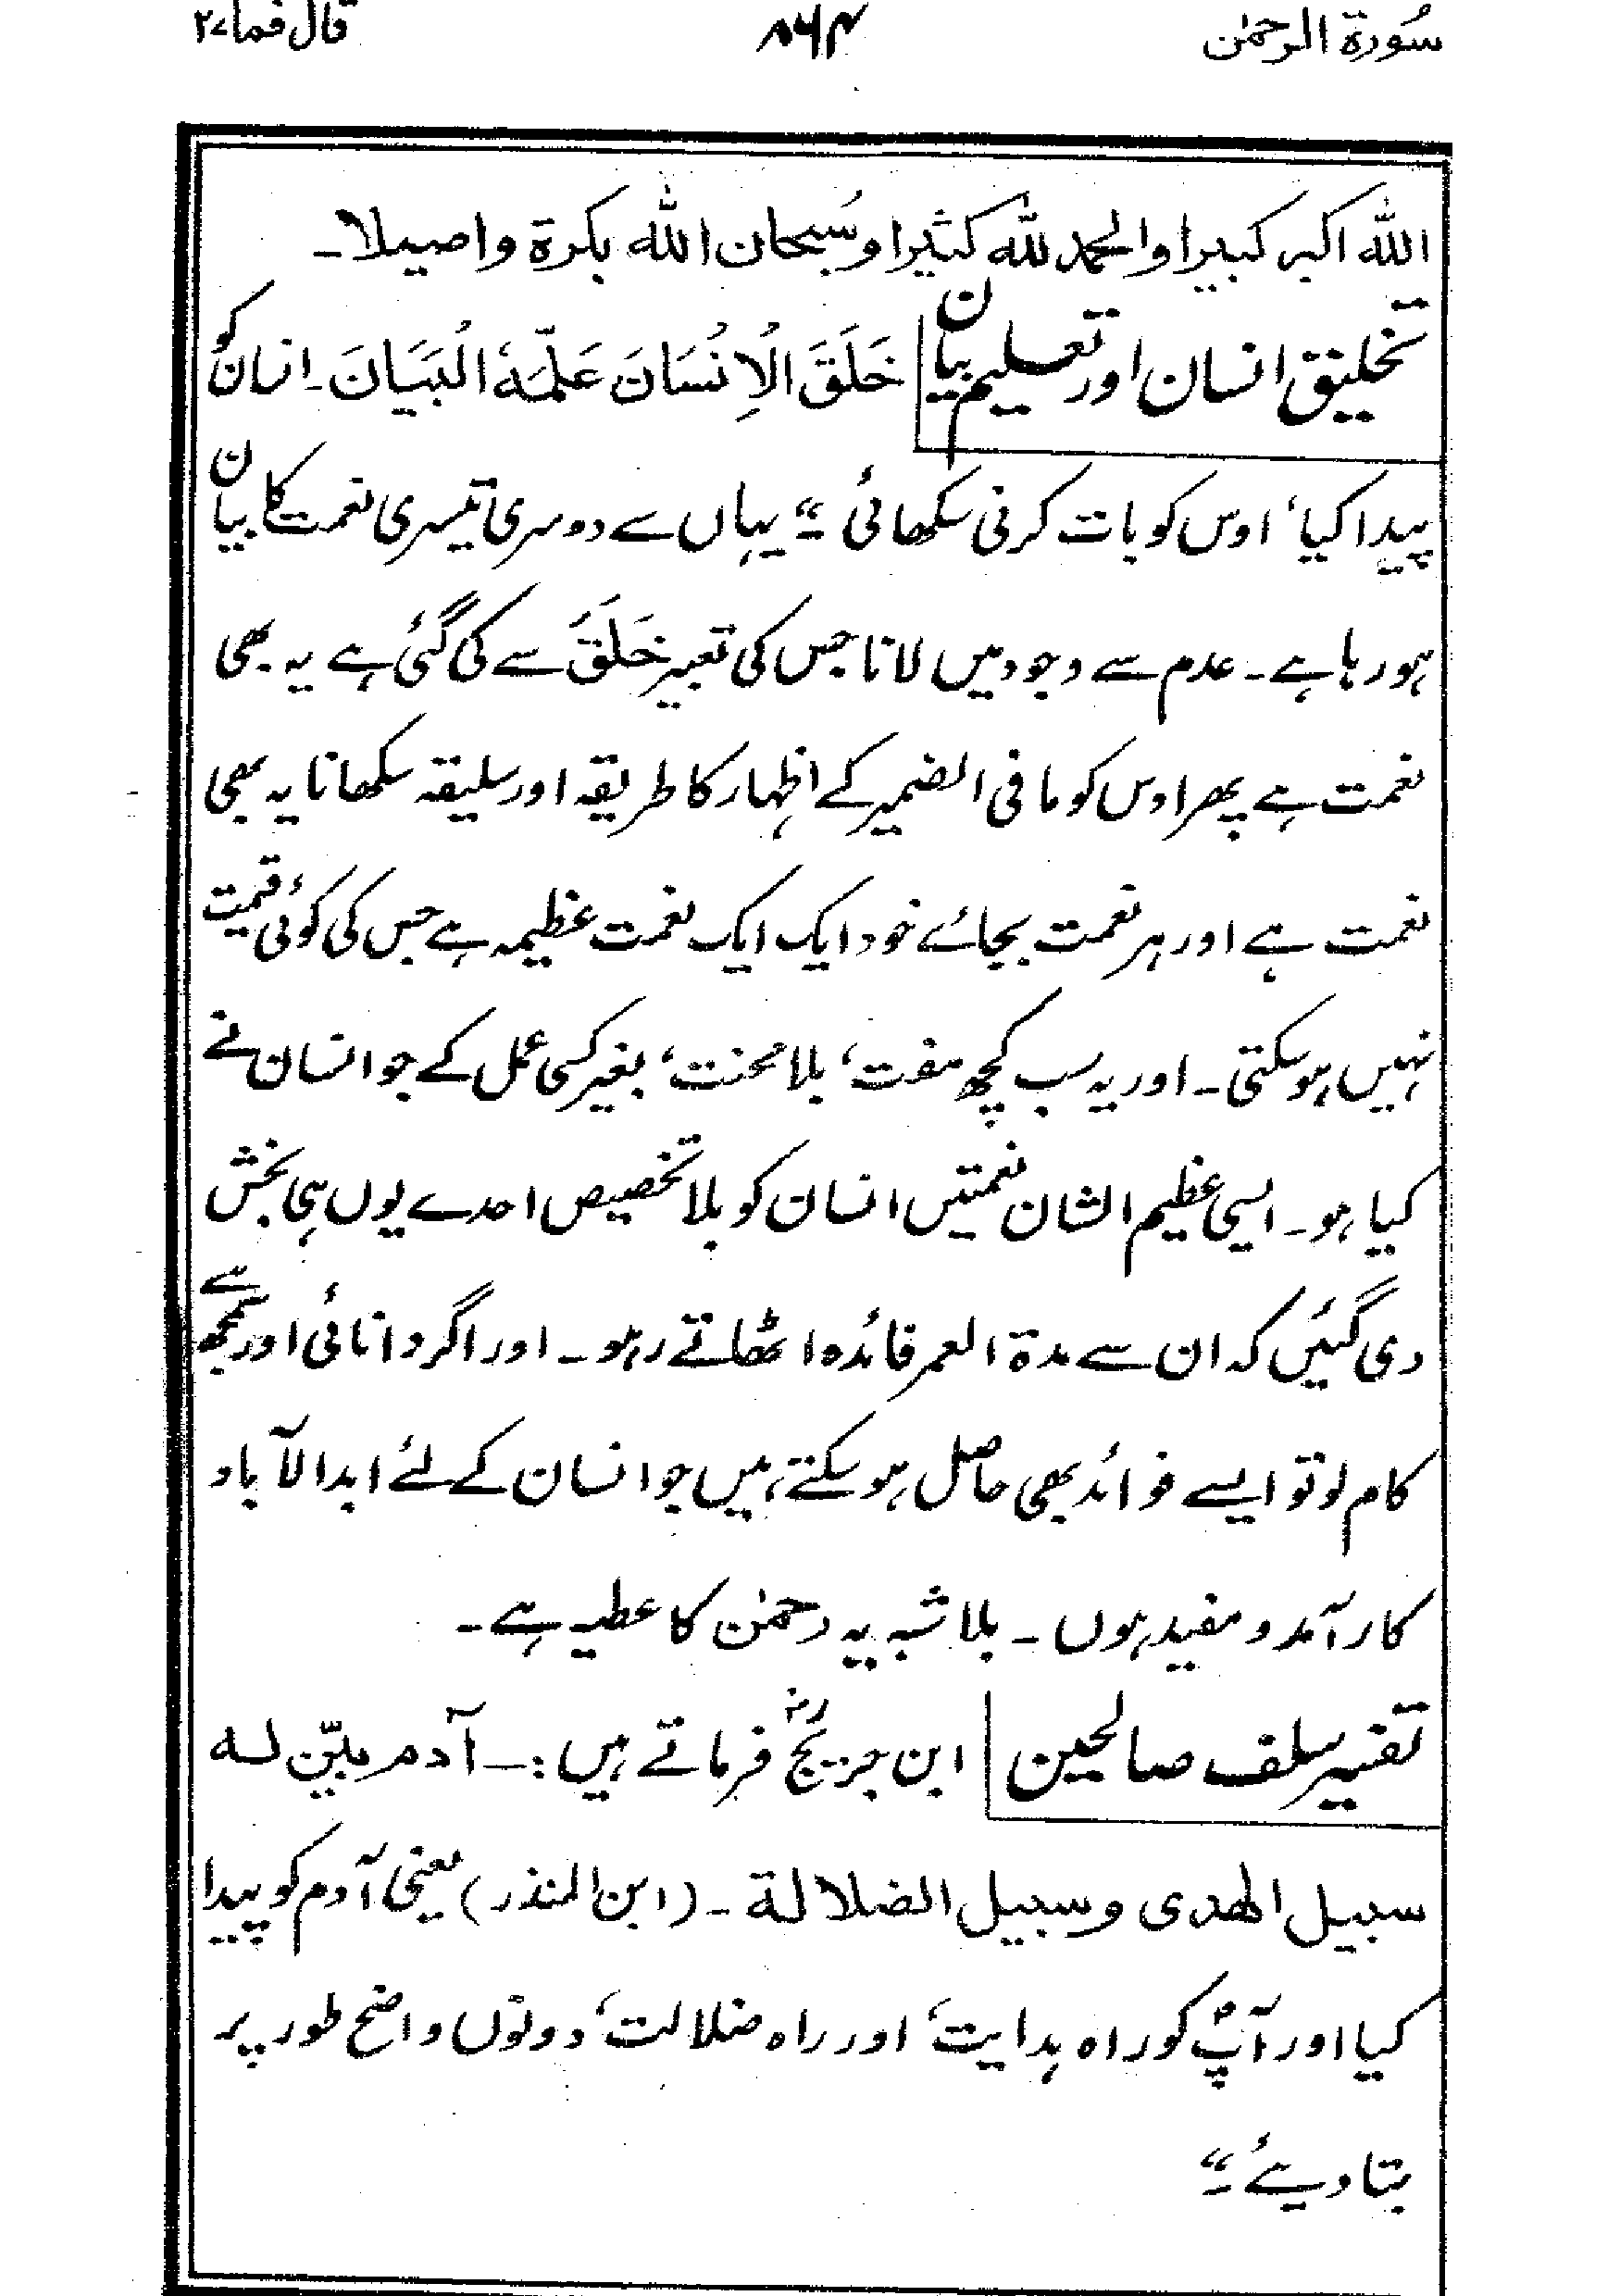 سُورۃ الرحمٰن ۸۶۴ قال فما ۲۷
اللہ اکبر کبیرا والحمد للہ کثیرا وسُبحان اللہ بکرۃ واصیلا۔
تخلیق انسان اور تعلیم بیان خَلَقَ الْاِنْسَانَ عَلَّمَہُ الْبَیَانَ۔ انسان کو
پیدا کیا، اوس کو بات کرنی سکھائی ۔“ یہاں سے دوسری تیسری نعمت کا بیان
ہو رہا ہے۔ عدم سے وجود میں لانا جس کی تعبیر خَلَقَ سے کی گئی ہے یہ بھی
نعمت ہے پھر اوس کو ما فی الضمیر کے اظہار کا طریقہ اور سلیقہ سکھانا یہ بھی
نعمت ہے اور ہر نعمت بجائے خود ایک ایک نعمت عظیمہ ہے جس کی کوئی قیمت
نہیں ہو سکتی۔ اور یہ سب کچھ مفت، بلا محنت، بغیر کسی عمل کے جو انسان نے
کیا ہو۔ ایسی عظیم الشان نعمتیں انسان کو بلا تخصیص احدے یوں ہی بخش
دی گئیں کہ ان سے مدۃ العمر فائدہ اٹھاتے رہو۔ اور اگر دانائی اور سمجھ سے
کام لو تو ایسے فوائد بھی حاصل ہو سکتے ہیں جو انسان کے لئے ابد الآباد
کار آمد و مفید ہوں۔ بلا شبہ یہ رحمٰن کا عطیہ ہے۔
تفسیر سلف صالحین ابن جریجؒ فرماتے ہیں:۔ آدم بیّن لہ
سبیل الھدی وسبیل الضلالۃ۔ (ابن المنذر) یعنی آدم کو پیدا
کیا اور آپؑ کو راہ ہدایت، اور راہ ضلالت، دونوں واضح طور پر
بتا دیئے ۔“